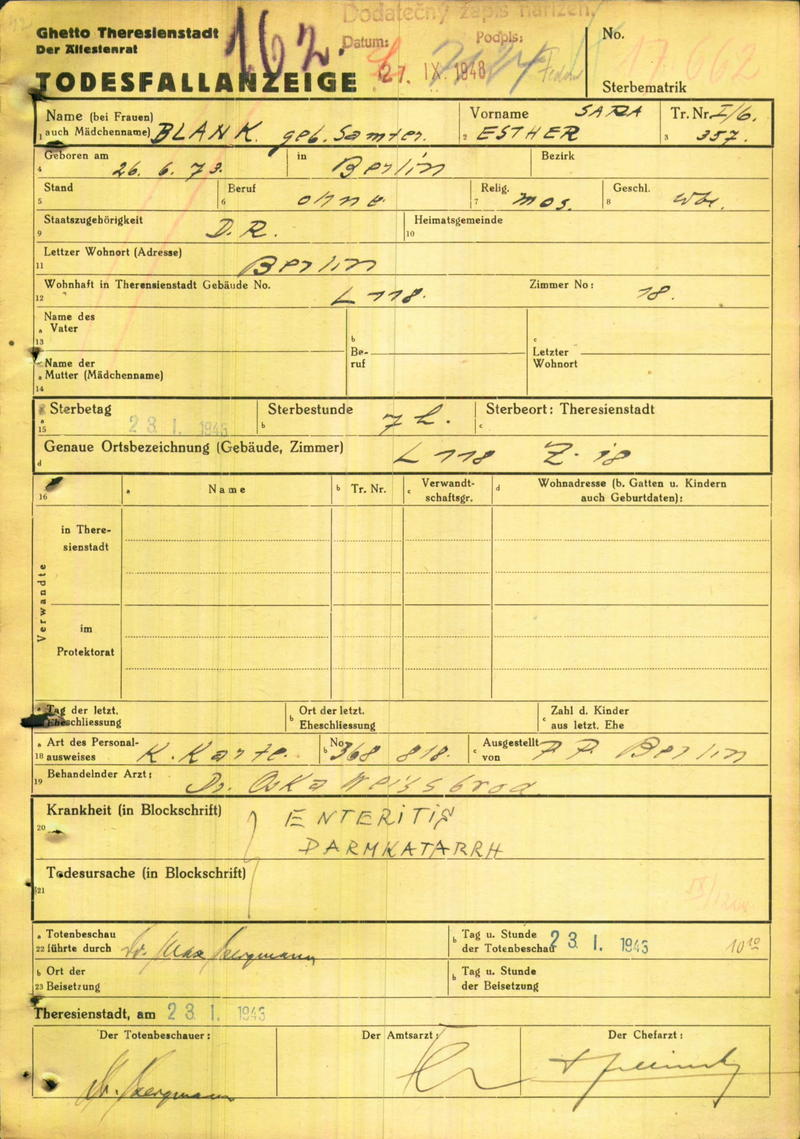 Dodatečný zápis nařízen
Ghetto Theresienstadt
Der Ältestenrat
162.
Datum: 27. IX. 1948
Podpis:
No. 17662
TODESFALLANZEIGE
Sterbematrik
Name (bei Frauen)
1 auch Mädchenname) BLANK. geb. Samter.
Vorname SARA
2 ESTHER
Tr. Nr. I/6.
3 357.
Geboren am
4 26. 6. 73.
in Berlin
Bezirk
Stand
5
Beruf
6 ohne.
Relig.
7 mos.
Geschl.
8 wbl.
Staatszugehörigkeit
9 D. R.
Heimatsgemeinde
10
Lettzer Wohnort (Adresse)
11 Berlin
Wohnhaft in Therensienstadt Gebäude No.
12 L 118.
Zimmer No: 18.
Name des
a Vater
13
b
Be-
ruf
c
Letzter
Wohnort
Name der
a Mutter (Mädchenname)
14
Sterbetag
a
15 23 I. 1943
Sterbestunde
b 7 h.
Sterbeort: Theresienstadt
c
Genaue Ortsbezeichnung (Gebäude, Zimmer)
d L 118 Z. 18
16
a Name
b Tr. Nr.
c Verwandt-
schaftsgr.
d Wohnadresse (b. Gatten u. Kindern
auch Geburtdaten):
Verwandte
in There-
sienstadt
im
Protektorat
a Tag der letzt.
Eheschliessung
b Ort der letzt.
Eheschliessung
c Zahl d. Kinder
aus letzt. Ehe
a Art des Personal-
18 ausweises K. Karte.
b No. 368 818.
c Ausgestellt
von P. P. Berlin
19 Behandelnder Arzt: Dr. Oska Weissbrod
Krankheit (in Blockschrift)
20
ENTERITIS
DARMKATARRH
Todesursache (in Blockschrift)
21
a Totenbeschau
22 führte durch Dr. Max Bergmann
b Tag u. Stunde
der Totenbeschau 23 I. 1943 10 10
b Ort der
23 Beisetzung
b Tag u. Stunde
der Beisetzung
Theresienstadt, am 23 I. 1943
Der Totenbeschauer:
Der Amtsarzt:
Der Chefarzt:
Dr. Bergmann